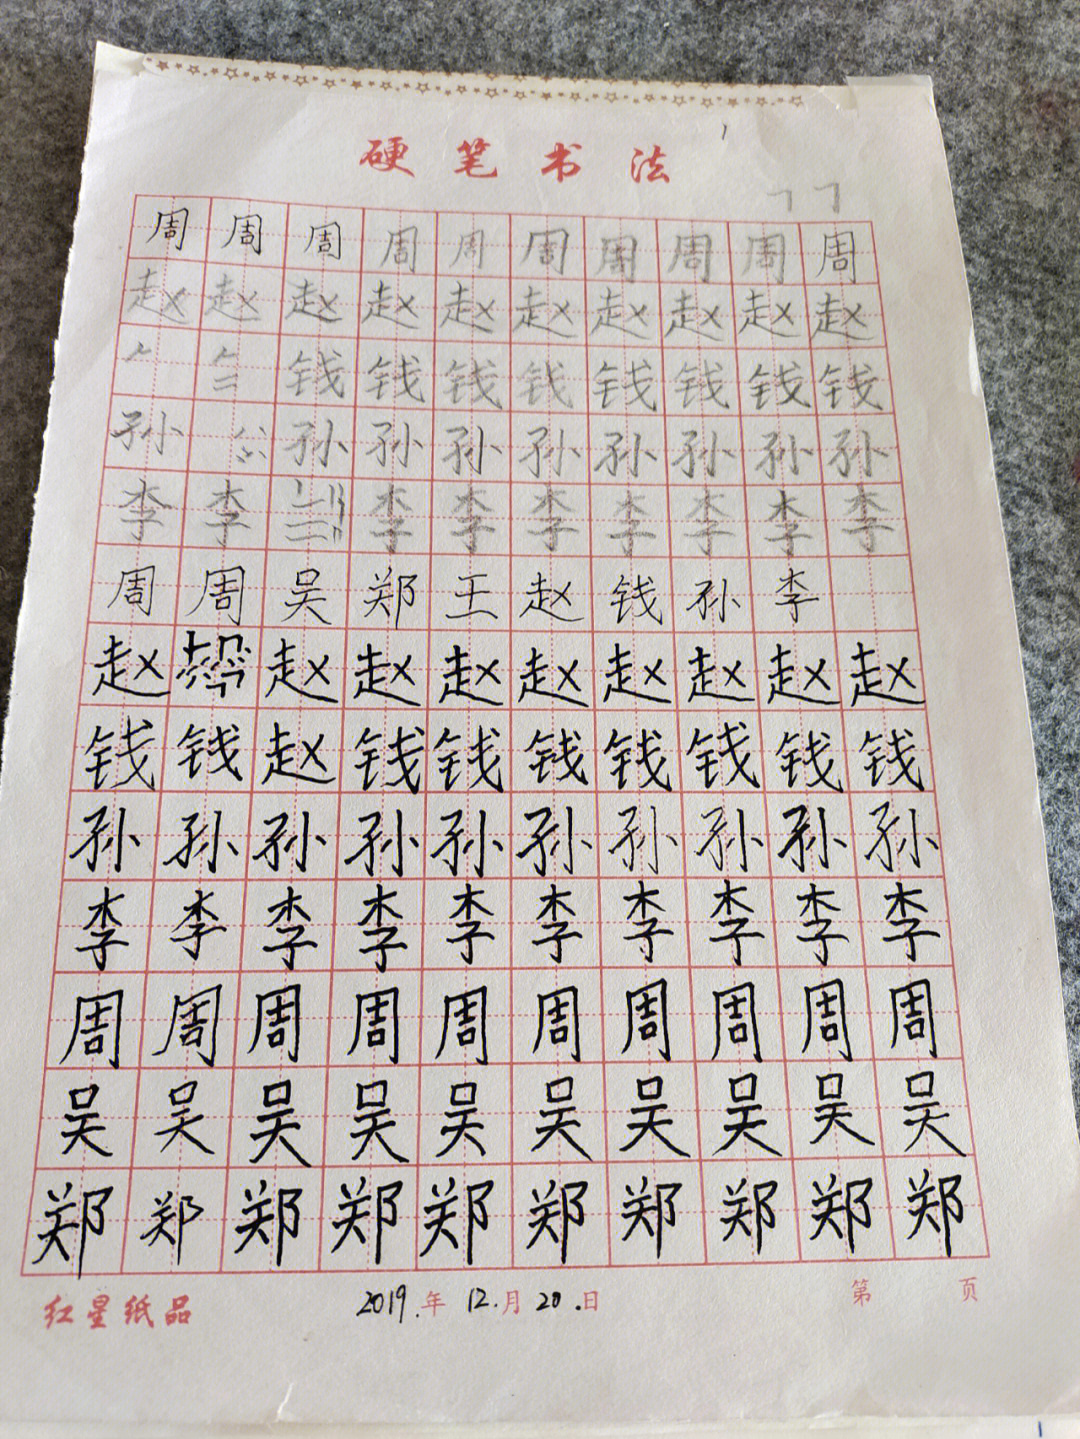 硬笔书法
周周周周周周周周周周
赵赵赵赵赵赵赵赵赵赵
钱钱钱钱钱钱钱钱
孙孙孙孙孙孙孙孙孙
李李李李李李李李李
周周吴郑王赵钱孙李
赵赵赵赵赵赵赵赵赵
钱钱赵钱钱钱钱钱钱钱
孙孙孙孙孙孙孙孙孙孙
李李李李李李李李李李
周周周周周周周周周周
吴吴吴吴吴吴吴吴吴吴
郑郑郑郑郑郑郑郑郑郑
红星纸品 2019.年 12.月 20.日 第 页